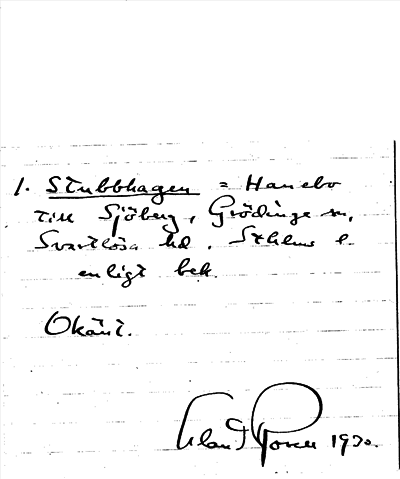 1. Stubbhagen = Hanebo
till Sjöberg, Grödinge sn,
Svartlösa hd. Sthlms l.
enligt bek.
Okänt.
1930.